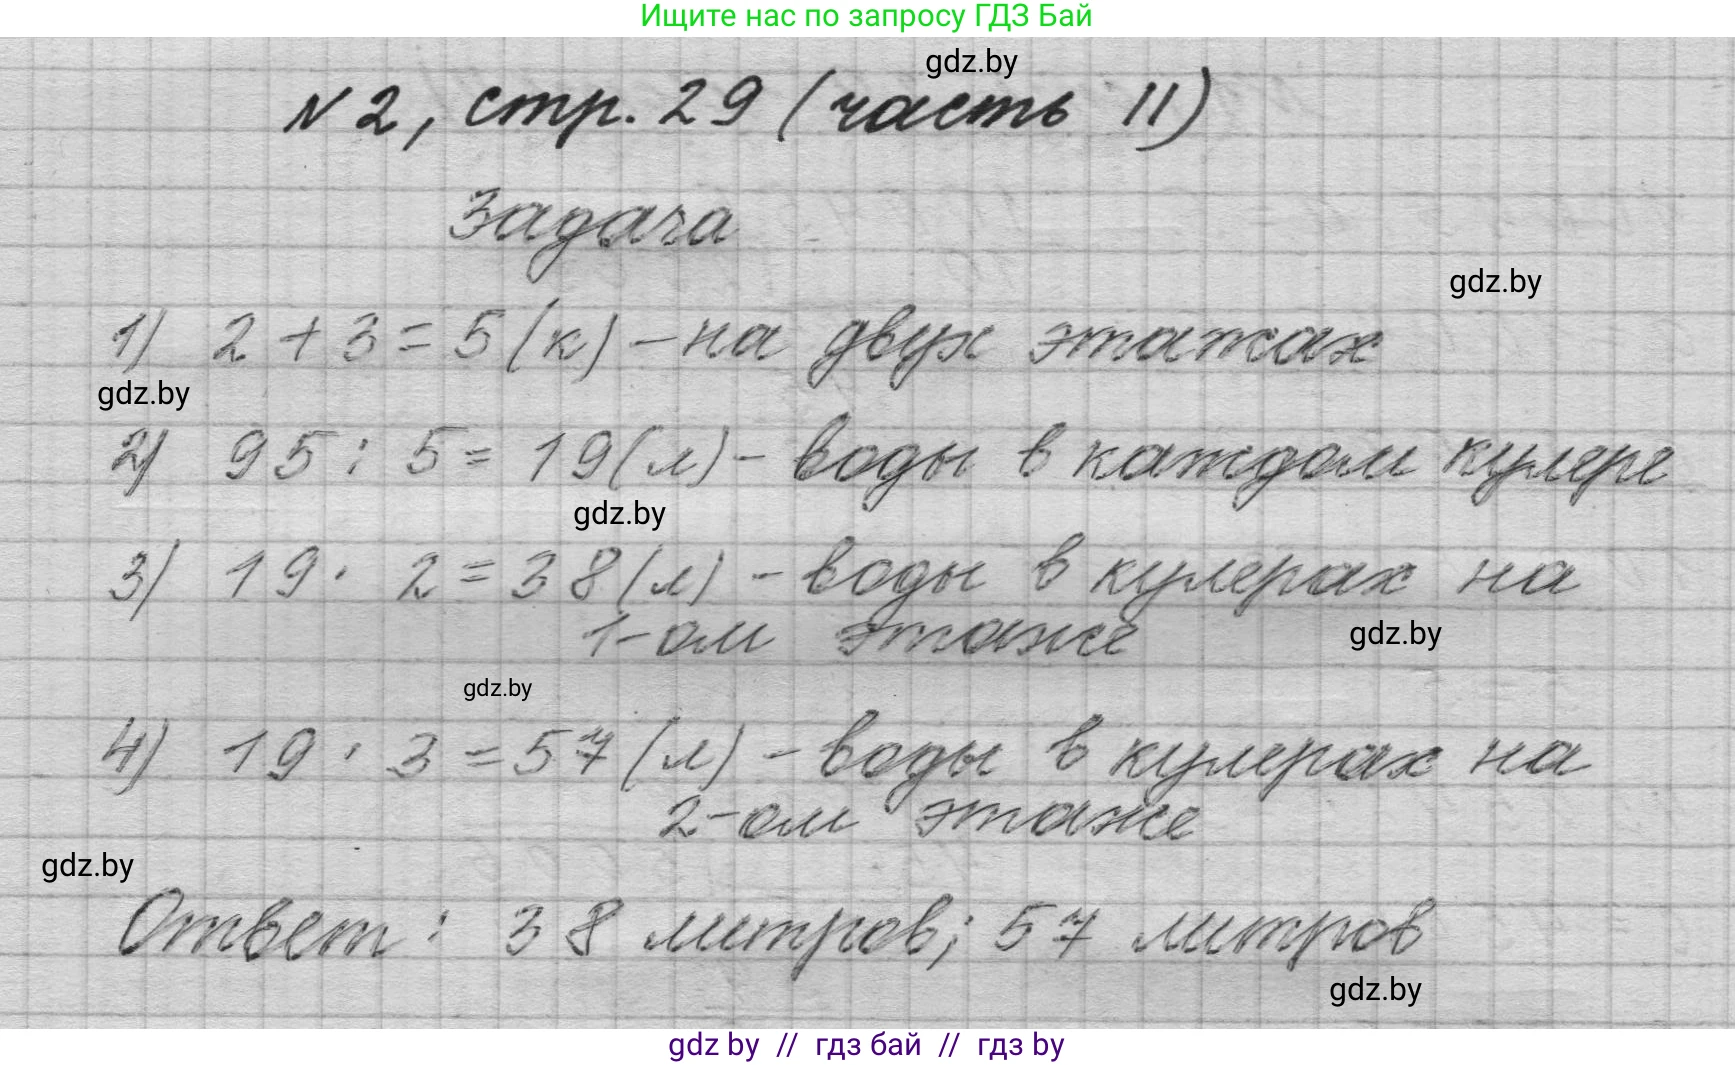 Ищите нас по запросу ГДЗ Бай
gdz.by
N 2, стр. 29 (часть II)
Задача
gdz.by
1) 2 + 3 = 5 (к) – на двух этажах
gdz.by
2) 95 : 5 = 19 (л) – воды в каждом кулере
gdz.by
3) 19 · 2 = 38 (л) – воды в кулерах на
1-ом этаже
gdz.by
gdz.by
4) 19 · 3 = 57 (л) – воды в кулерах на
2-ом этаже
gdz.by
Ответ: 38 литров; 57 литров
gdz.by
gdz by // гдз бай // гдз by